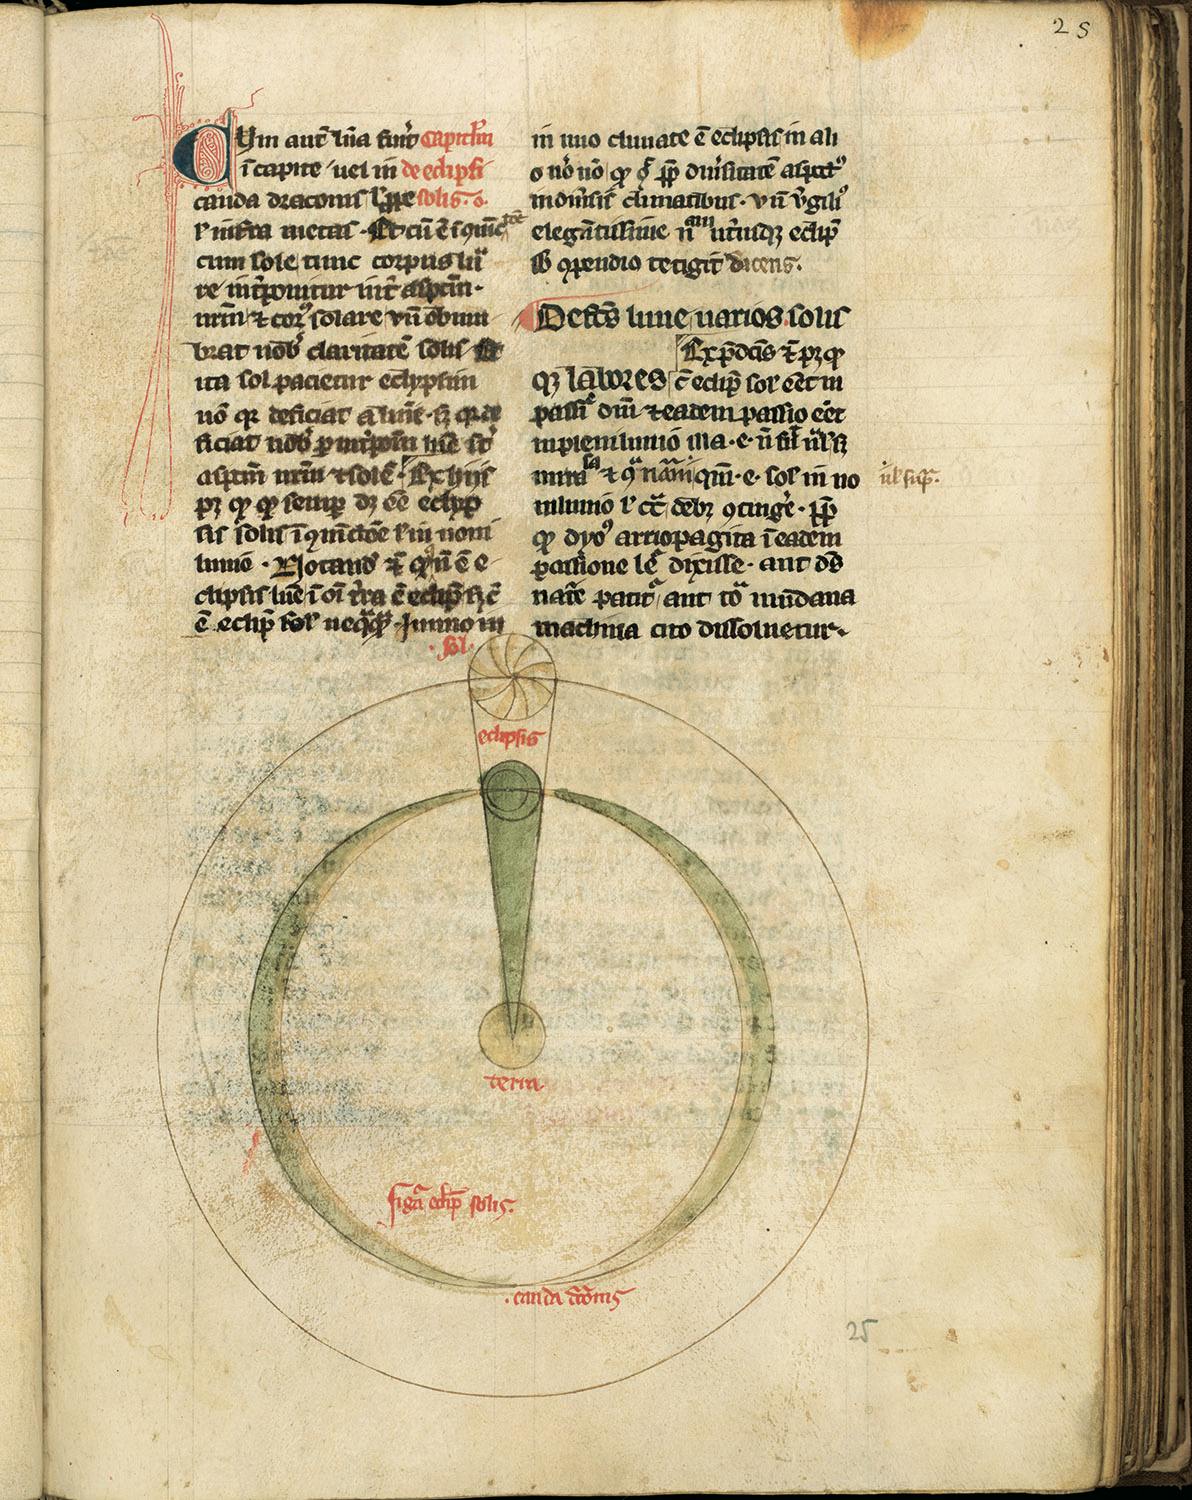 25
Cum aut̄ luna fuerit Capitl'm
ī capite uel in de eclipsi
cauda draconis l' ꝓpe solis. o.
l' infra metas · Et cū ē ī ꝯiūctōē
cum sole tunc corpus lu
re int̄ponitur int̄ aspcm̄·
nrm̄ ⁊ corꝰ solare vn̄ obum
brat nob̄ claritatē solis Et
ita sol patietur eclypsim
nō qꝛ deficiat a lumīe · sꝫ qꝛ de
ficiat nob̄ ꝓ int̄poīm lune int̄
aspcm̄ nrm̄ ⁊ solē · Ex hiis
pꝫ qꝫ semꝑ dꝫ ēē eclyp
sis solis ī ꝯiūctōe l' in noui
lunio · Notand' ⁊ qꝫ qn̄ ē e
clipsis lune ī oī t̄ra ē eclip̄ sꝫ cū
ē eclip̄ sol' neqͣqͣꝫ · Immo in
in uno climate ē eclipsis in ali
o ūo nō qꝫ ꝓp̄ diūsitatē aspctꝰ
in diūsis climatibus · vn̄ v̄giliꝰ
elegātissime nͣam utriusqꝫ eclip̄
sb̄ ꝯpendio tetigit dicens·
Defctꝰ lune uarios solis
Ex p̄dcīs ⁊ pꝫ qꝫ
qꝫ labores cū eclip̄ sol' eēt in
passiōe dnī ⁊ eadem passio eēt
in plenilunio illa · e· n̄ fuit nͣlis
nūlis.
nūm · e· sol' in no
uilunio l' cͣ debꝫ ꝯtinge͛ · ꝓp̄
qꝫ dyoꝰ arriopagita ī eadem
passione leͬ dixisse · aut dꝰ
nat̄e patitͬ aut toͣ mūdana
machina cito dissoluetur·
· sol·
eclipsis
terra
figͣa eclip̄ solis·
· cauda dͣconis
25